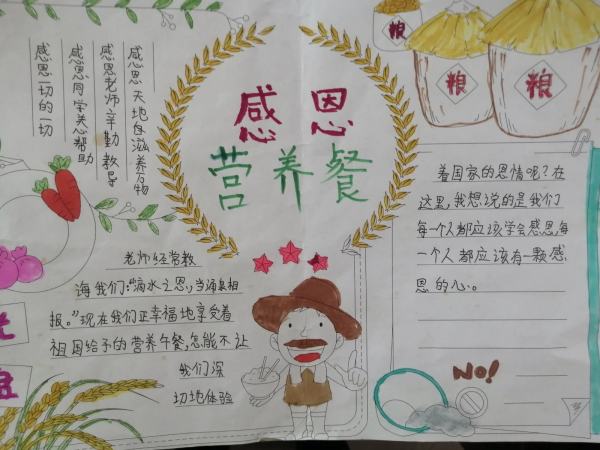 感恩天地自滋养万物
感恩老师辛勤教导
感恩同学关心帮助
感恩一切的一切
感恩
营养餐
粮
粮
粮
老师经常教
海我们:“滴水之恩,当涌泉相
报。”现在我们正幸福地享受着
祖国给予的营养午餐,怎能不让
我们深
切地体验
着国家的恩情呢?在
这里,我想说的是我们
每个人都应该学会感恩,每
一个人都应该有一颗感
恩的心。
NO!